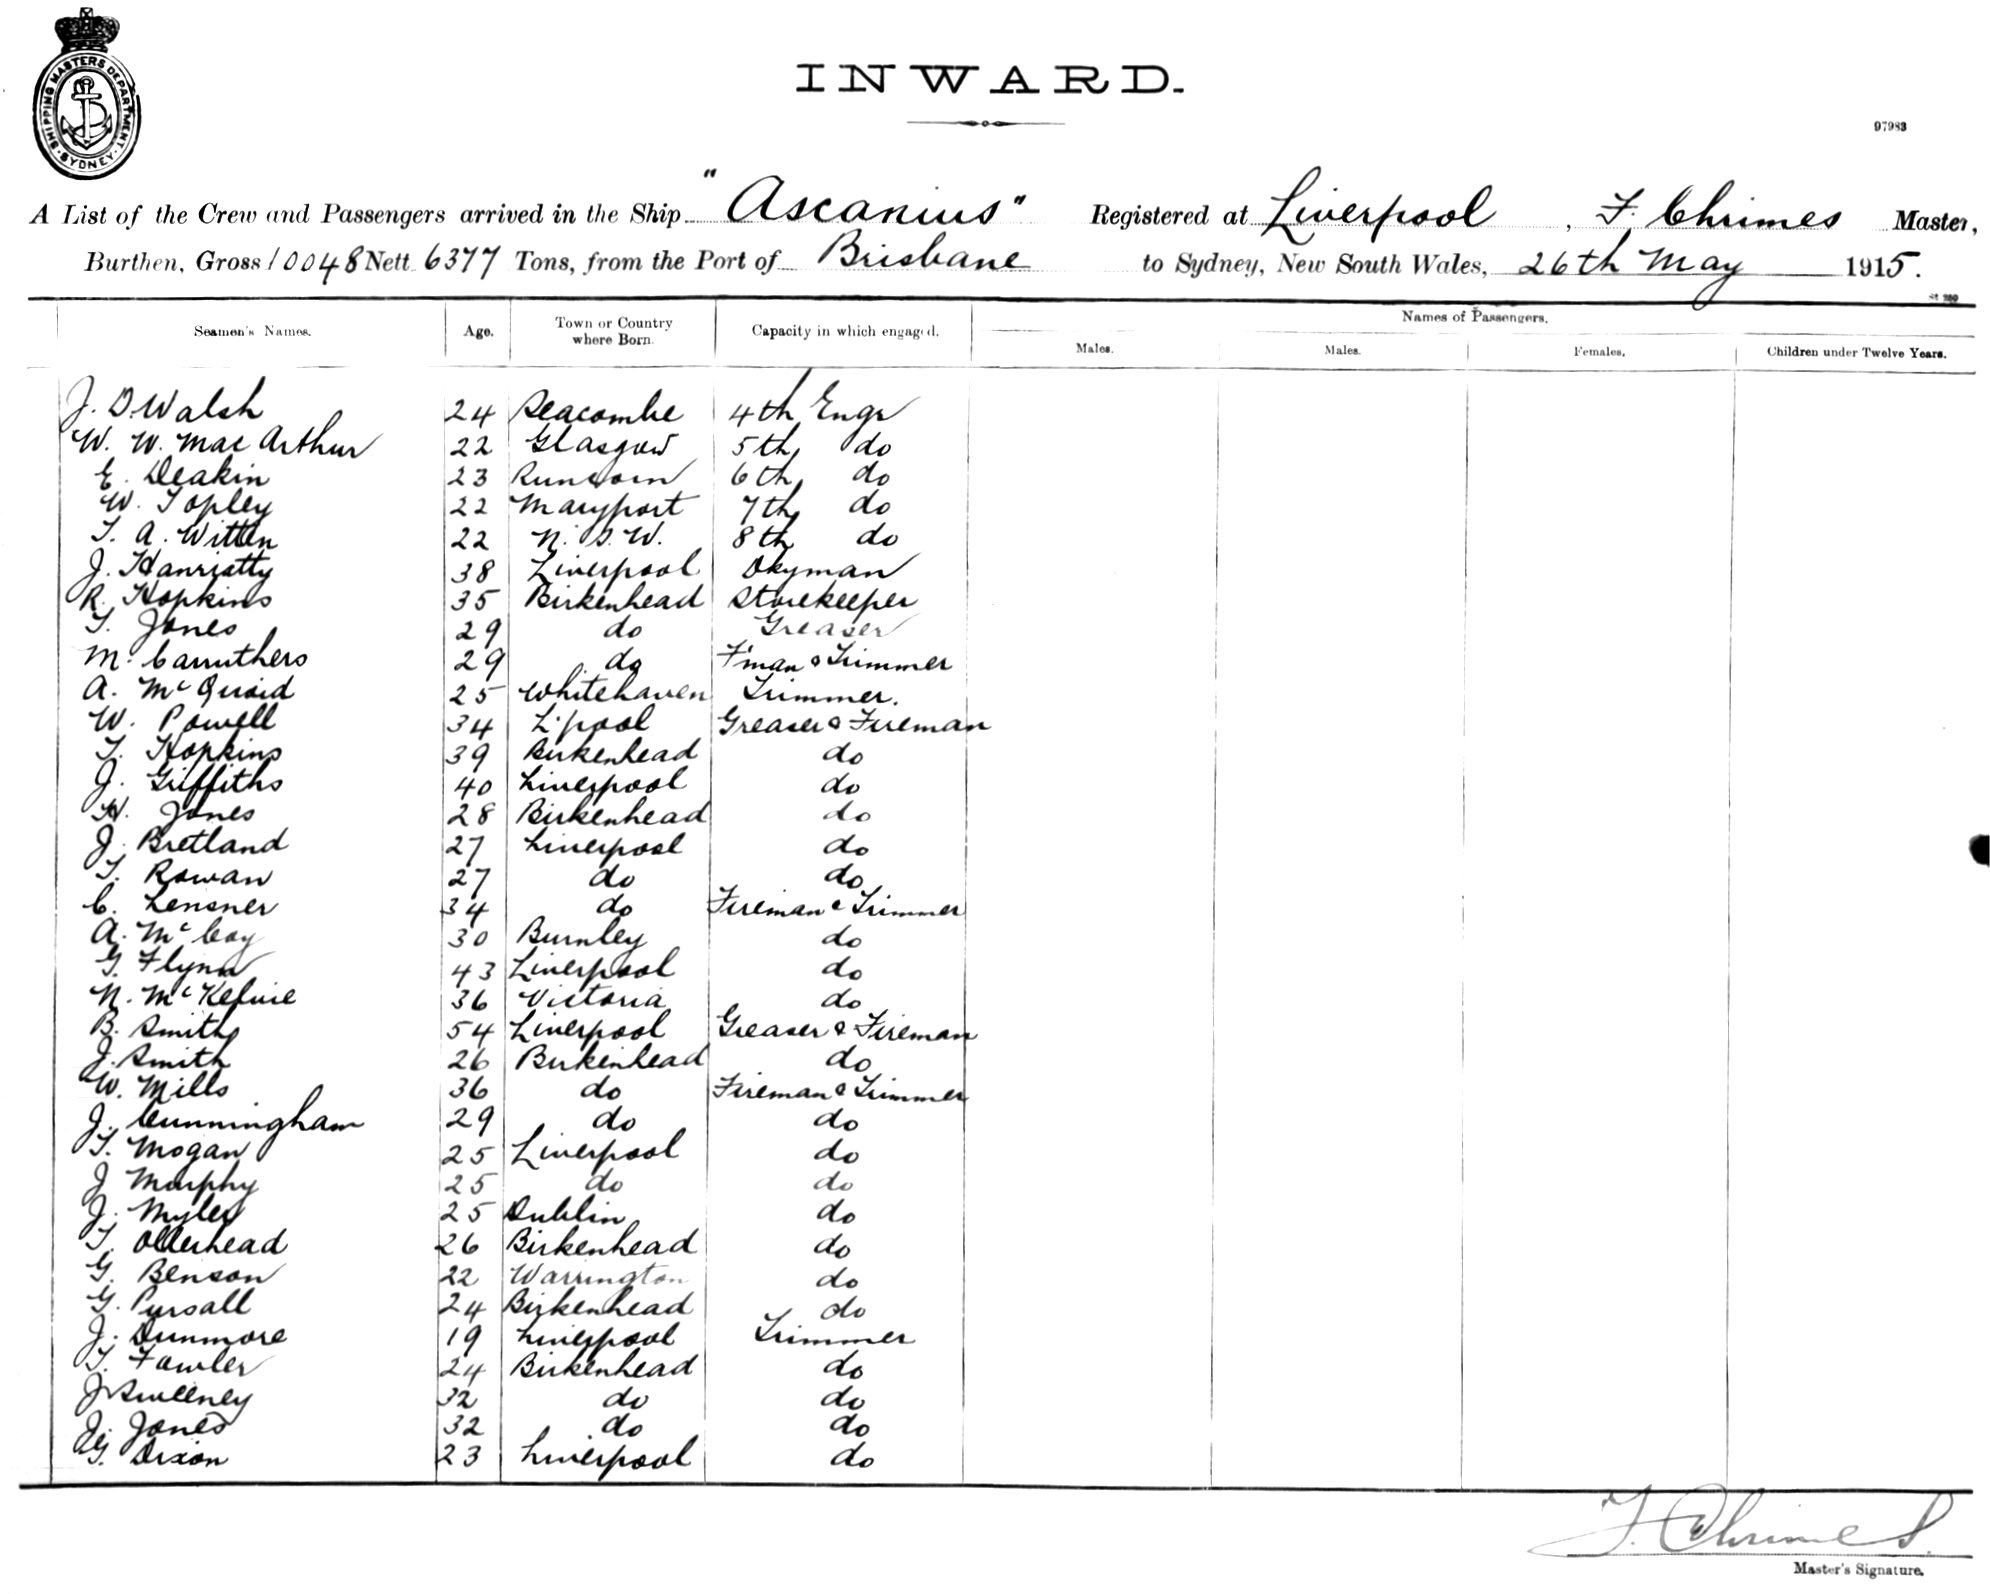 SHIPPING MASTERS DEPARTMENT. SYDNEY
INWARD.
97983
A List of the Crew and Passengers arrived in the Ship "Ascanius" Registered at Liverpool, F. Chrimes Master,
Burthen, Gross 10048 Nett 6377 Tons, from the Port of Brisbane to Sydney, New South Wales, 26th May 1915.
Names of Passengers.
Seamen's Names. Age. Town or Country where Born. Capacity in which engaged. Males. Males. Females. Children under Twelve Years.
J. D. Walsh 24 Seacombe 4th Engr
W. W. MacArthur 22 Glasgow 5th do
E. Deakin 23 Runcorn 6th do
W. Topley 22 Maryport 7th do
T. A. Witten 22 N. S. W. 8th do
J. Hanriatty 38 Liverpool Dkyman
R. Hopkins 35 Birkenhead Storekeeper
T. Jones 29 do Greaser
M. Carruthers 29 do F'man & Trimmer
A. McQuaid 25 Whitehaven Trimmer.
W. Powell 34 L'pool Greaser & Fireman
T. Hopkins 39 Birkenhead do
J. Griffiths 40 Liverpool do
H. Jones 28 Birkenhead do
J. Bretland 27 Liverpool do
T. Rowan 27 do do
C. Lensner 34 do Fireman & Trimmer
A. McCoy 30 Burnley do
G. Flynn 43 Liverpool do
N. 36 Victoria do
B. Smith 54 Liverpool Greaser & Fireman
J. Smith 26 Birkenhead do
W. Mills 36 do Fireman & Trimmer
J. Cunningham 29 do do
T. Mogan 25 Liverpool do
J Murphy 25 do do
J. Myler 25 Dublin do
T. Ollerhead 26 Birkenhead do
G. Benson 22 Warrington do
G. Pursall 24 Birkenhead do
J. Dunmore 19 Liverpool Trimmer
T. Fowler 24 Birkenhead do
J Sweeney 32 do do
J. Jones 32 do do
G. Dixon 23 Liverpool do
F. Chrimes
Master's Signature.